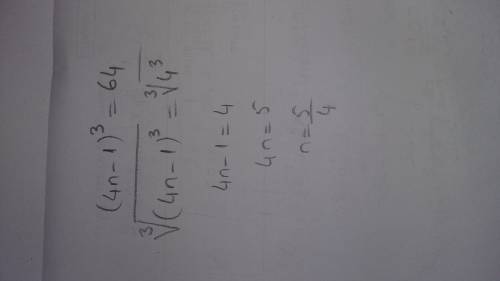 (4n-1)³ = 64
∛(4n-1)³ = ∛4³
4n-1 = 4
4n = 5
n = 5/4